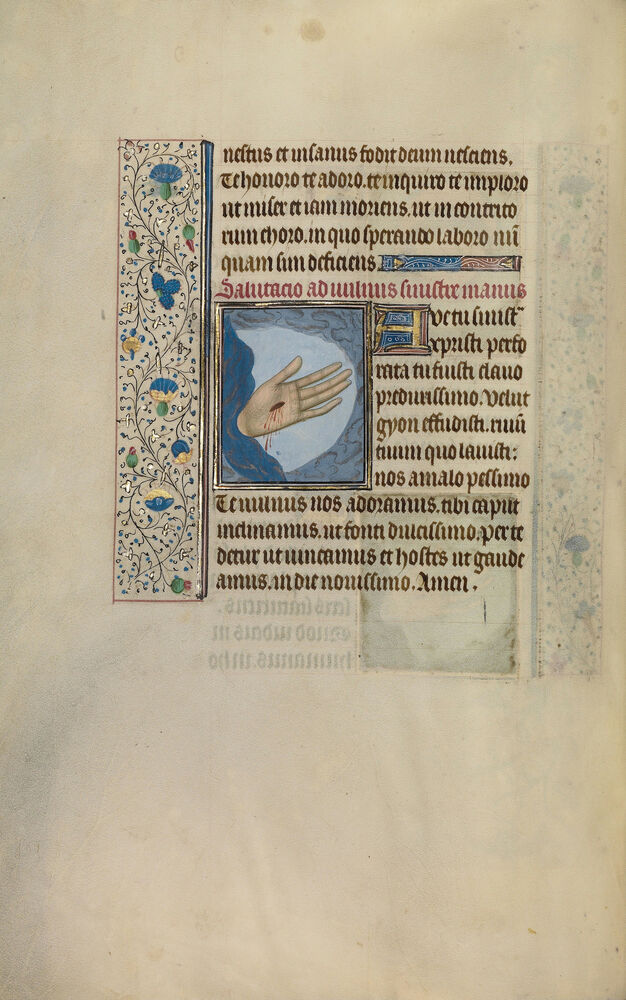 nestus et insanus fodit deum nesciens.
Te honoro te adoro. te inquiro te imploro
ut miser et iam moriens. ut in contrito
rum choro. in quo sperando laboro nūc
quam sim deficiens
Salutacio ad vulnus sinistre manus
Ave tu sinist
xpristi perfo
rata tu fuisti clavo
predurissimo. velut
gyon effudisti. rivū
tuum quo lavisti:
nos a malo pessimo
Te vulnus nos adoramus. tibi caput
inclinamus. ut fonti dulcissimo. per te
detur ut vincamus et hostes ut gaude
amus. in die novissimo. Amen.